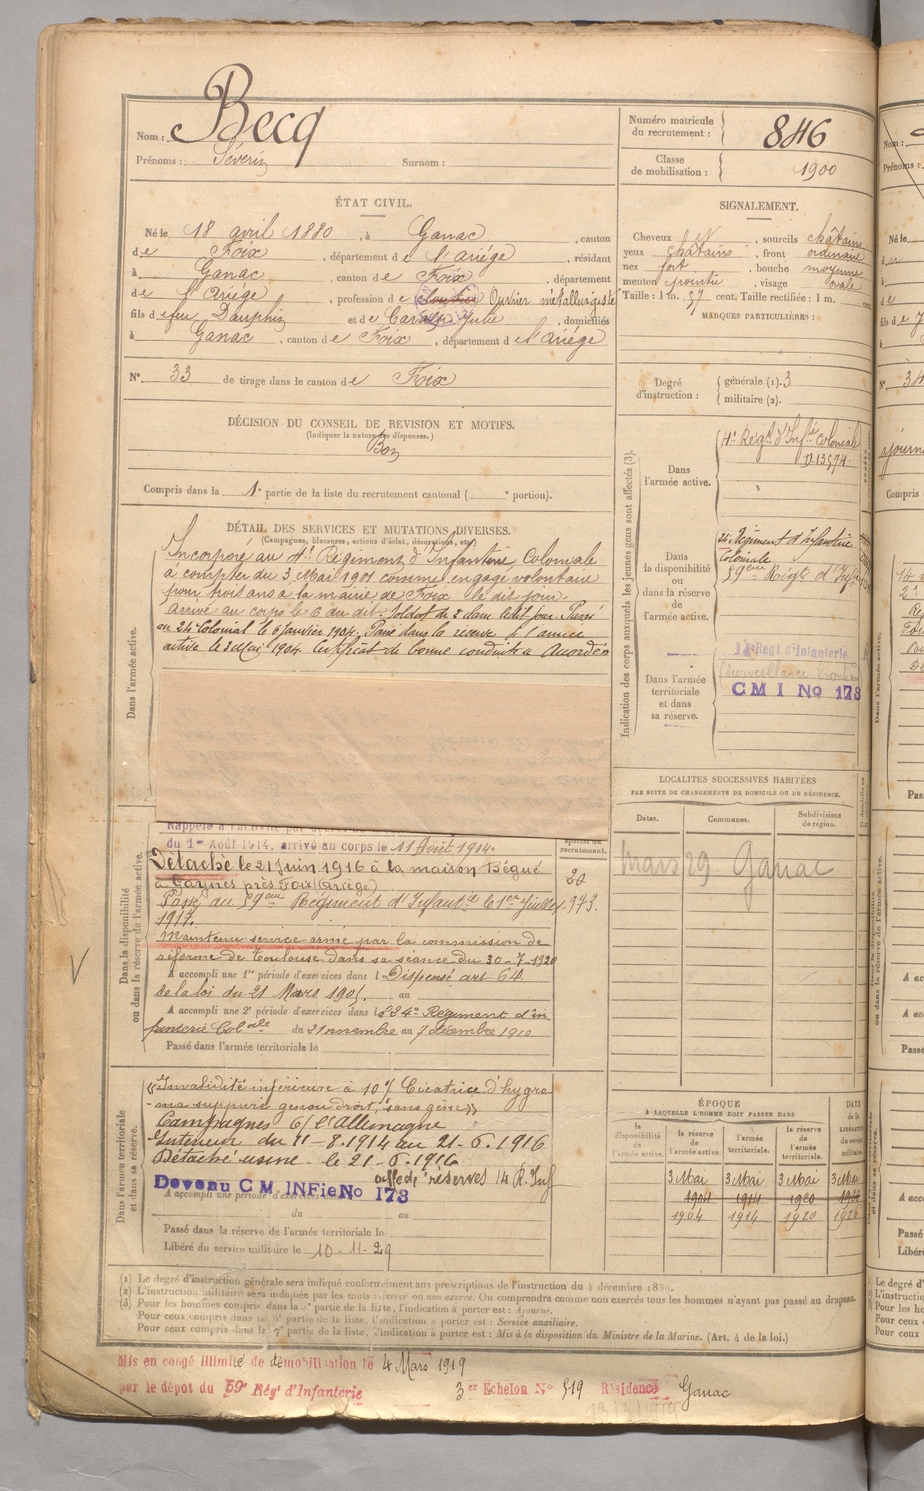 Nom : Becq
Prénoms : Séverin Surnom :
Numéro matricule du recrutement : 846
Classe de mobilisation : 1900
ÉTAT CIVIL.
Né le 18 avril 1880, à Ganac, canton
de Foix, département de l'Ariège, résidant
à Ganac, canton de Foix, département
de l'Ariège, profession de Ouvrier métallurgiste
fils de feu Dauphin et de Julie, domiciliés
à Ganac, canton de Foix, département de l'Ariège
N° 33 de tirage dans le canton de Foix
SIGNALEMENT.
Cheveux N, sourcils châtains
yeux châtains, front ordinaire
nez fort, bouche moyenne
menton pointu, visage ovale
Taille : 1 m. 57 cent. Taille rectifiée : 1 m.
MARQUES PARTICULIÈRES :
Degré d'instruction : générale (1). 3
militaire (2).
DÉCISION DU CONSEIL DE REVISION ET MOTIFS.
(Indiquer la nature des dispenses.)
Bon
Compris dans la 1e partie de la liste du recrutement cantonal ( e portion).
DÉTAIL DES SERVICES ET MUTATIONS DIVERSES.
(Campagnes, blessures, actions d'éclat, décorations, etc.)
Dans l'armée active.
Incorporé au 4e Régiment d'Infanterie Coloniale
à compter du 3 Mai 1901 comme engagé volontaire
pour trois ans à la mairie de Foix le dit jour.
Arrivé au corps le 6 du dit. Soldat de 2e classe le dit jour. Passé
au 24e Colonial le 6 Janvier 1904. Passé dans la réserve de l'armée
active le 3 Mai 1904. Certificat de bonne conduite Accordé
Indication des corps auxquels les jeunes gens sont affectés (3).
Dans l'armée active.
4e Régt d'Infie Coloniale
Dans la disponibilité ou dans la réserve de l'armée active.
24 Régiment d'Infanterie
Coloniale
59eme Régt d'Infie
Dans l'armée territoriale et dans sa réserve.
14e Regt d'Infanterie
CMI No 173
LOCALITÉS SUCCESSIVES HABITÉES
PAR SUITE DE CHANGEMENTS DE DOMICILE OU DE RÉSIDENCE.
Dates. Communes. Subdivisions de région.
Mars 29 Ganac
Dans la disponibilité ou dans la réserve de l'armée active.
Rappelé à l'activité par
du 1er Août 1914, arrivé au corps le 11 Août 1914.
recrutement.
Détaché le 21 Juin 1916 à la maison Bégué
près Foix (Ariège)
Passé au 59eme Régiment d'Infantie le 1er Juillet
1917.
973.
Maintenu service armé par la commission de
réforme de Toulouse dans sa séance du 30-7-1920
A accompli une 1re période d'exercices dans l Dispensé art
de la loi du 21 Mars 1905. au
A accompli une 2e période d'exercices dans le 24e Régiment d'in
fanterie Colale du 21 novembre au 7 décembre 1910
Passé dans l'armée territoriale le
Dans l'armée territoriale et dans sa réserve.
«Invalidité inférieure à 10% Cicatrice d'hygro
-ma suppuré genou droit, sans gêne»
Campagnes C/ l'Allemagne
Intérieur du 11-8.1914 au 21-6.1916
Détaché usine - le 21-6.1916
réserves 14 R. Inf
Devenu CM INFie No 173
A accompli une période d'exercices
du au
Passé dans la réserve de l'armée territoriale le
Libéré du service militaire le 10-11-29
ÉPOQUE
À LAQUELLE L'HOMME DOIT PASSER DANS
la disponibilité de l'armée active. la réserve de l'armée active. l'armée territoriale. la réserve de l'armée territoriale. DATE de la LIBÉRATION du service militaire
3 Mai 3 Mai 3 Mai 3 Mai
1904 1914 1920 1926
1904 1914 1920 1926
(1) Le degré d'instruction générale sera indiqué conformément aux prescriptions de l'instruction du 4 décembre
(2) L'instruction militaire sera indiquée par les mots : exercé ou non exercé. On comprendra comme non exercés tous les hommes n'ayant pas passé au drapeau.
(3) Pour les hommes compris dans la 5e partie de la liste, l'indication à porter est : Ajourné.
Pour ceux compris dans la 6e partie de la liste, l'indication à porter est : Service auxiliaire.
Pour ceux compris dans la 7e partie de la liste, l'indication à porter est : Mis à la disposition du Ministre de la Marine. (Art. 4 de la loi.)
Mis en congé illimité de démobilisation le 4 Mars 1919
par le dépôt du 59e Régt d'Infanterie 3er Echelon No 519 Résidence Ganac